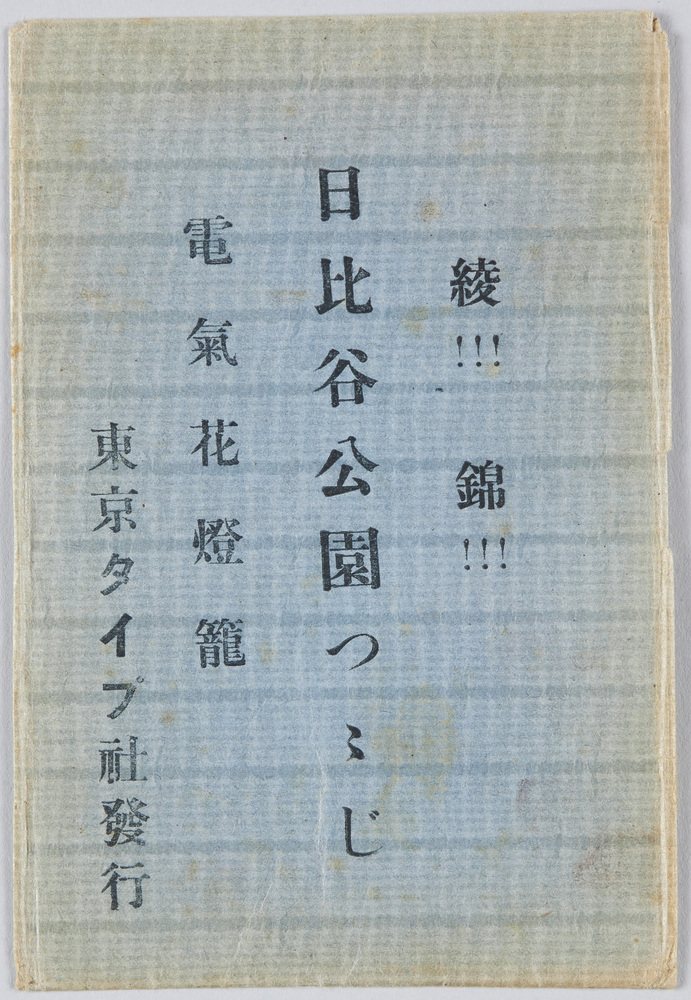 綾!!! 錦!!!
日比谷公園つゝじ
電氣花燈籠
東京タイプ社發行